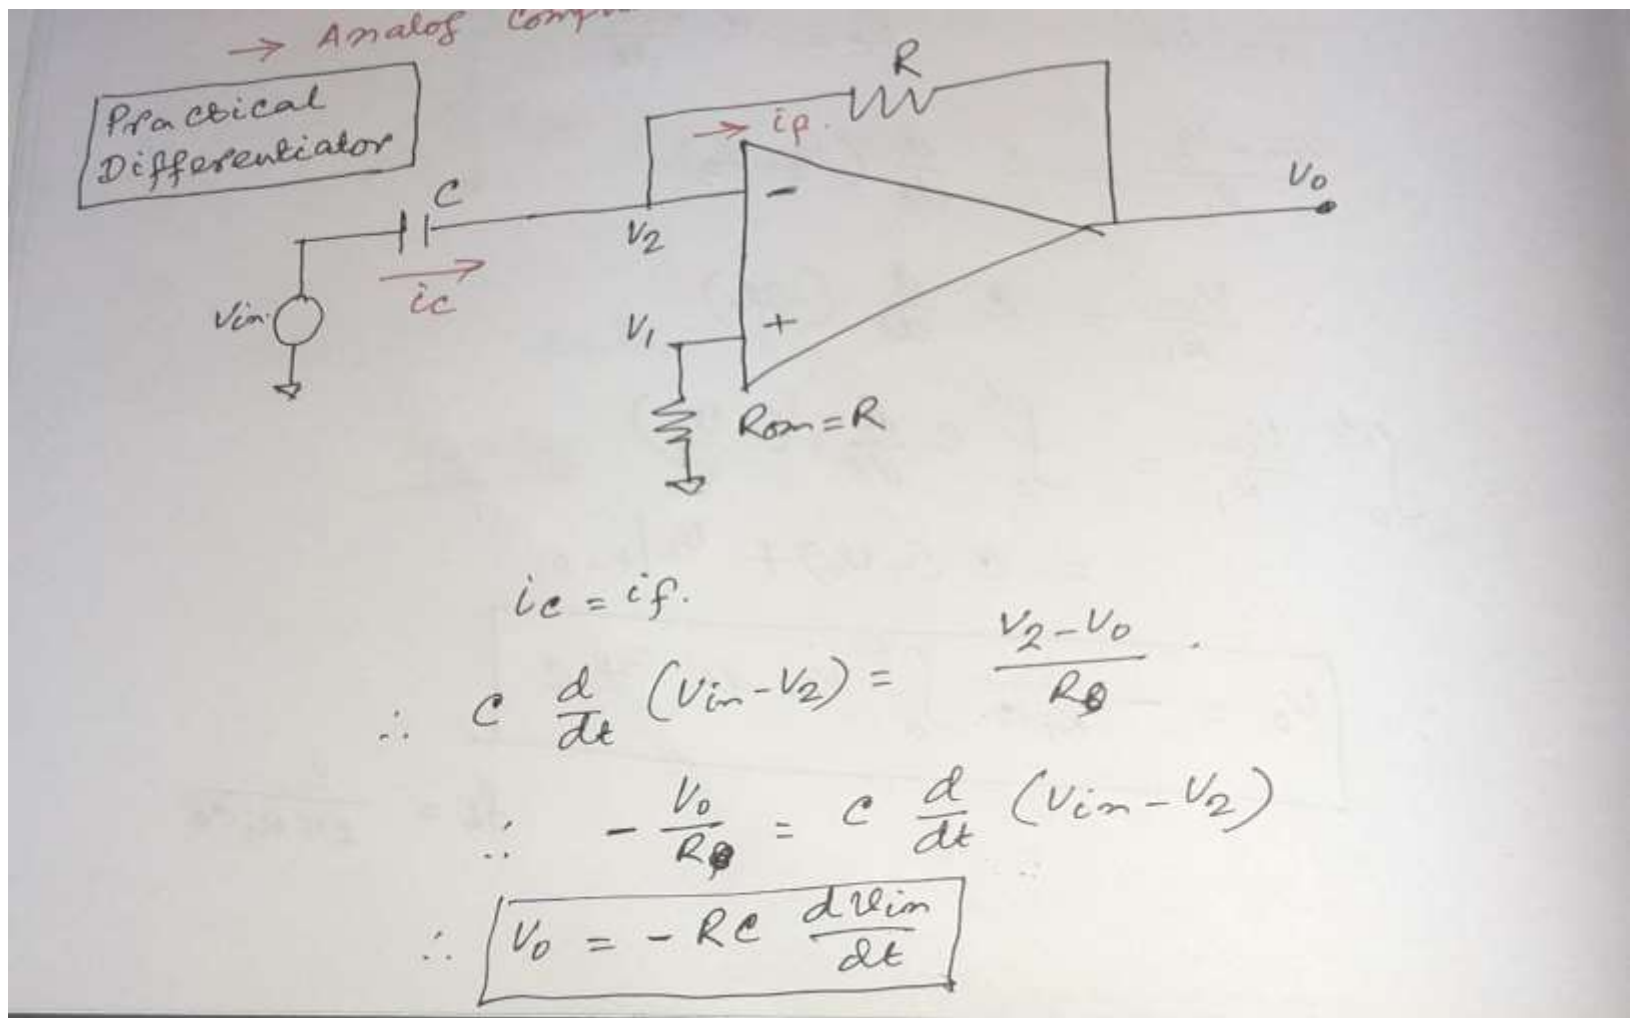 → Analog
Practical
Differentiator
R
→ if.
C
-
V0
V2
ic
Vin
V1
+
Rom = R
ic = if.
∴ C d/dt (Vin - V2) = V2 - V0 / R
∴ - V0/R = C d/dt (Vin - V2)
∴ V0 = - RC dVin/dt